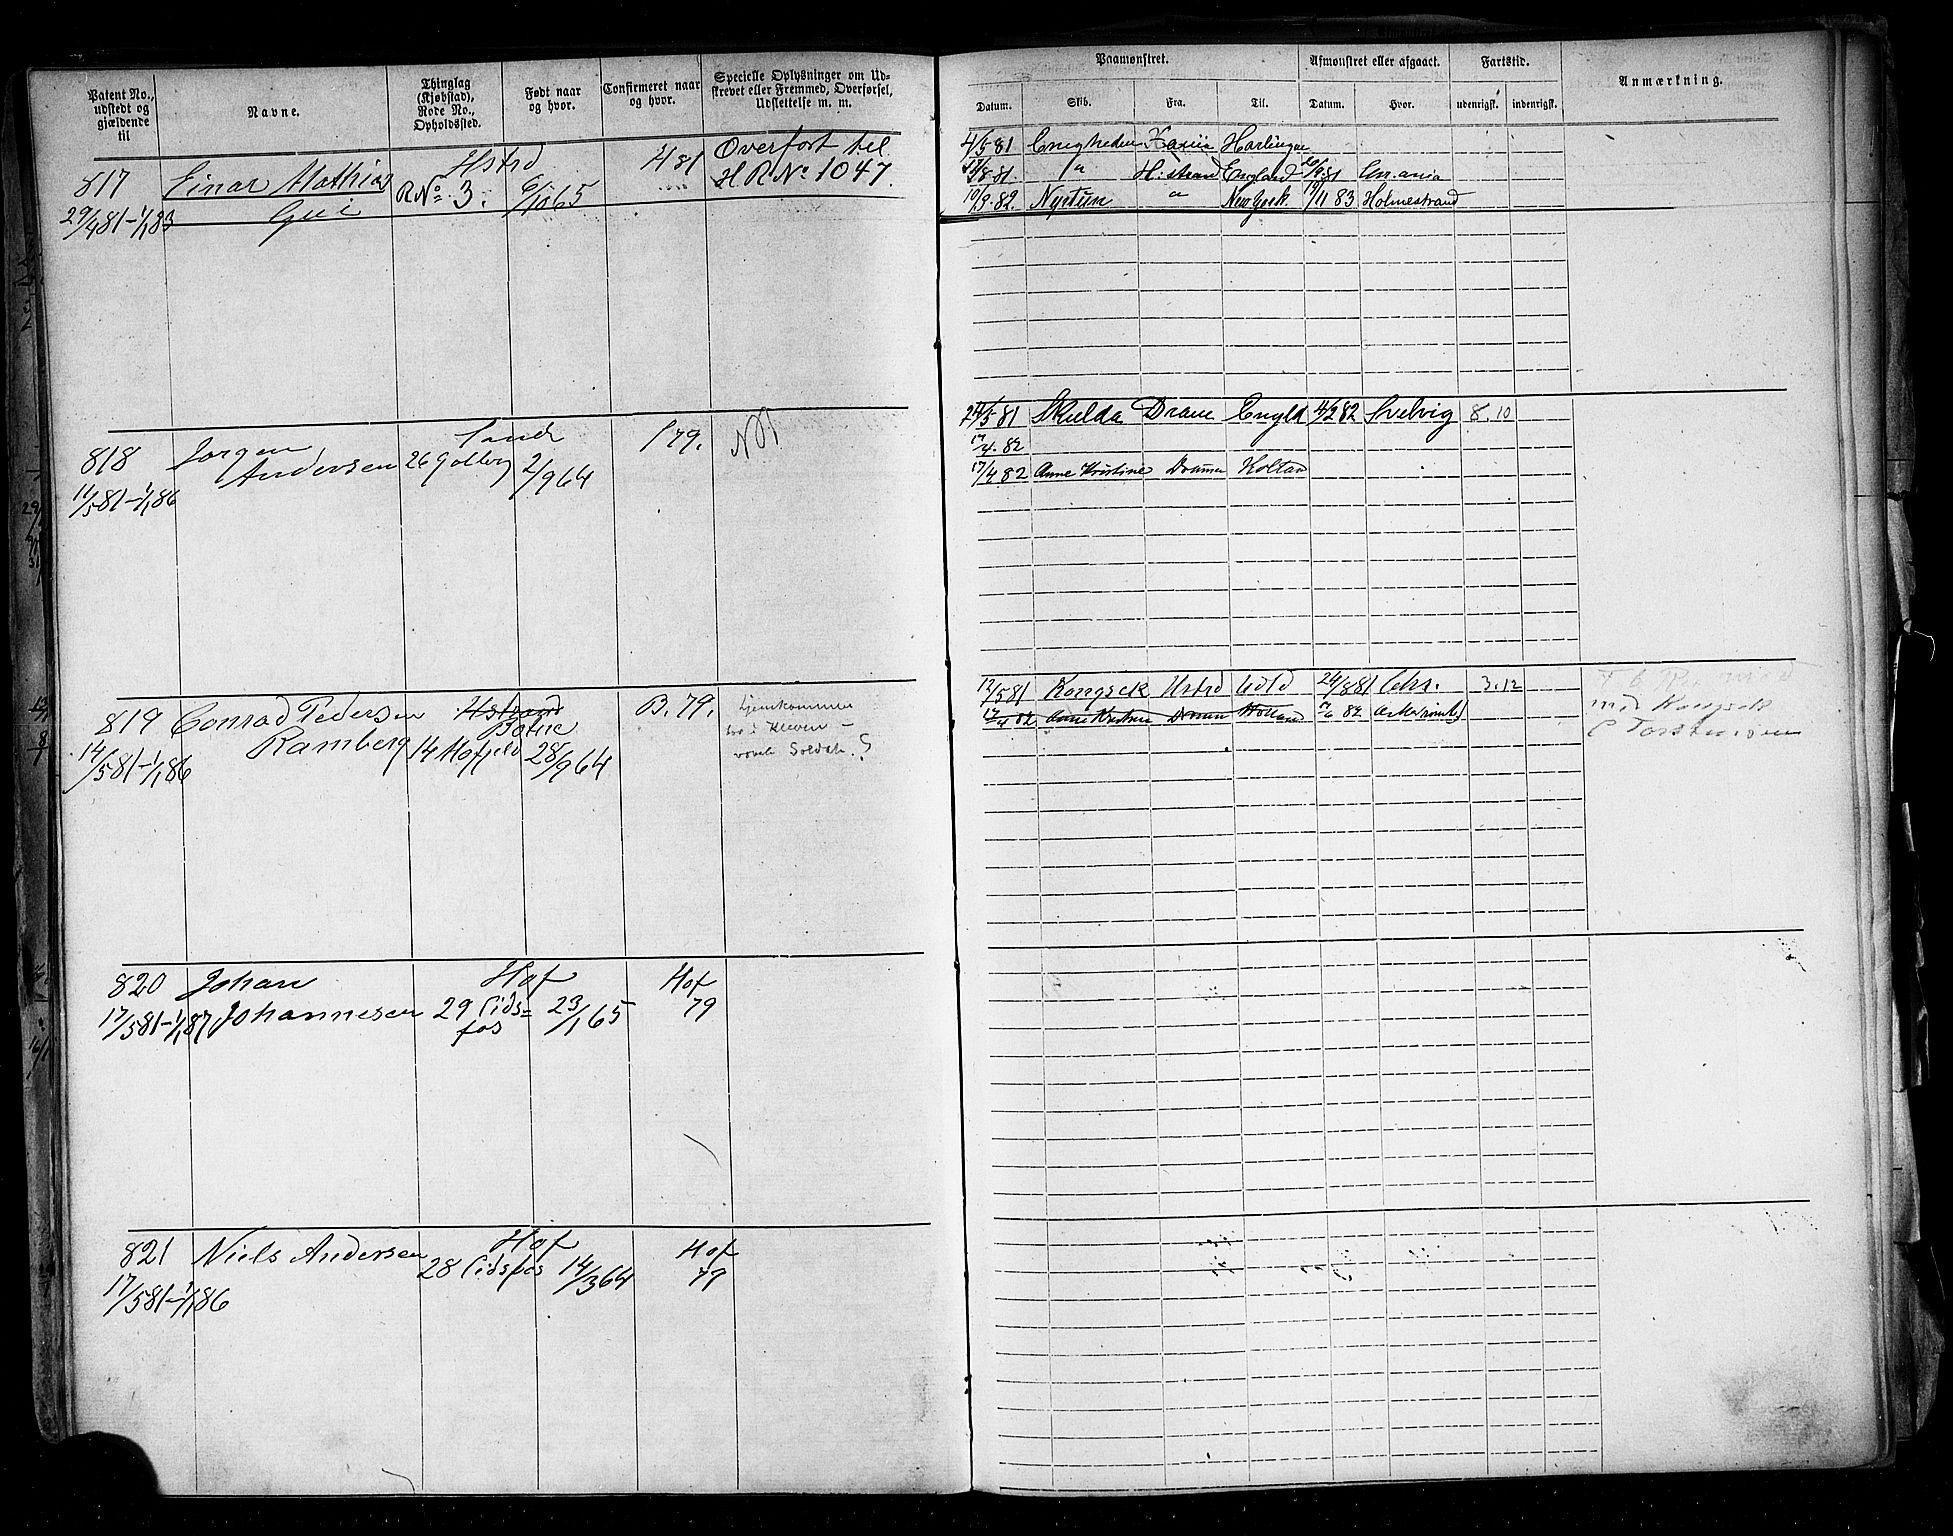 Patent No., udstedt og gjældende til
Navne.
Thinglag (Kjøbstad), Rode No., Opholdssted.
Født naar og hvor.
Confirmeret naar og hvor.
Specielle Oplysninger om Udskrevet eller Fremmed, Overførsel, Udslettelse m. m.
Paamønstret.
Afmønstret eller afgaaet.
Fartstid.
Anmærkning.
Datum. Skib. Fra. Til. Datum. Hvor. udenrigsk. indenrigsk.
817 Einar Mathias Hstrd H 81 Overført til
29/4 81-1/1 83 R No 3. 6/10 65 H R No 1047.
4/5 81 Enigheden Harlingen
17/8 81 " H:strand England 81
10/9 82. Nystun " New York 19/11 83 Holmestrand
818 Jørgen Sande S 79.
Andersen 26 Golberg 2/9 64
11/5 81-1/1 86
21/5 81 Skulda Dram Engld 4/2 82 Svelvig 8.10
17/4 82
17/4 82 Anne Kristine Drammen
819 Conrad Pedersen Hstrand B. 79. Hjemkommen
Botne
Ramberg 14 Hoffjeld 28/9 64
14/5 81-1/1 86 Soldat ?
12/5 81 Kongsek Hstrd 24/8 81 Chr. 3.12
17/4 82 Anne Kristine Dramm Holland 82
med Kongsek
820 Johan Hof Hof
17/5 81-1/1 87 Johannesen 29 Eids= 23/1 65 79
fos
821 Niels Andersen Hof Hof
28 Eidsfos 14/3 64 79
17/5 81-1/1 86